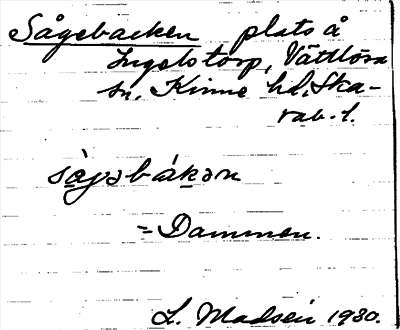 Sågebacken plats å
Ingelstorp, Vättlösa
sn, Kinne hd, Ska-
rab. l.
sågəbákən
= Dammen.
L. Madsen 1930.